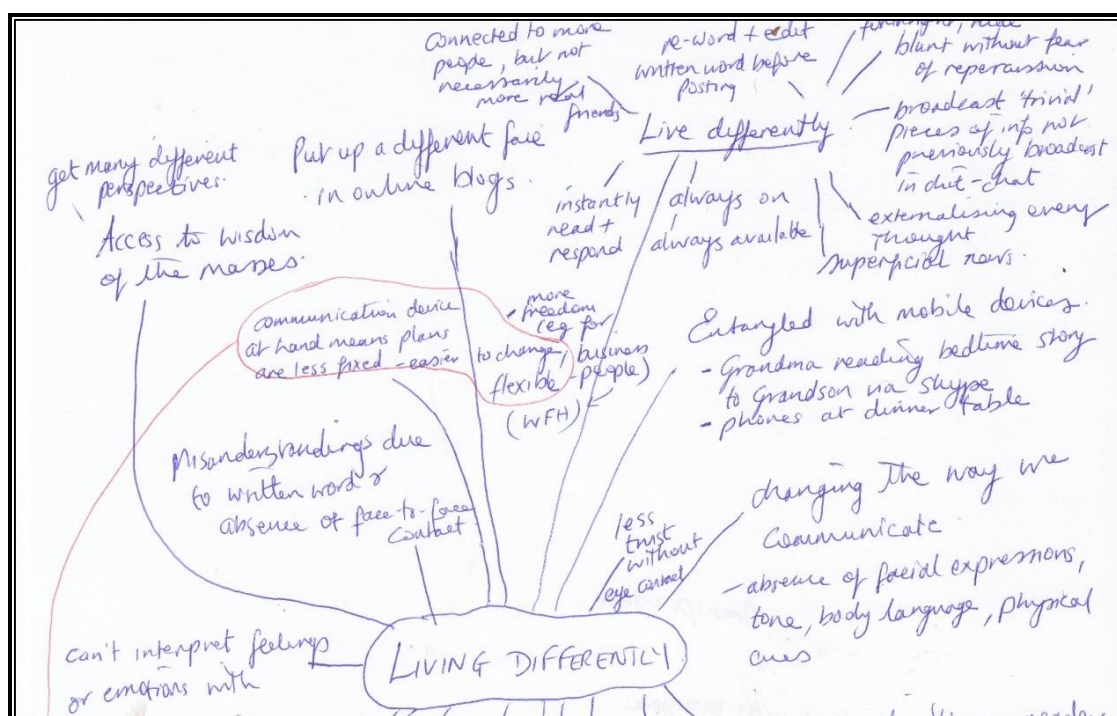 connected to more
people, but not
necessarily
more real
friends
re-word + edit
written word before
posting
blunt without fear
of repercussion
Live differently
- broadcast 'trivial'
pieces of info not
previously broadcast
in chit-chat
externalising every
thought
superficial news.
always on
always available
instantly
read +
respond
get many different
perspectives.
Access to wisdom
of the masses.
Put up a different face
in online blogs.
communication device
at hand means plans
are less fixed - easier to change,
flexible
more
freedom
(eg for
business
people)
(WFH)
Entangled with mobile devices.
- Grandma reading bedtime story
to Grandson via skype
- phones at dinner table
Misunderstandings due
to written word &
absence of face-to-face
contact
less
trust
without
eye contact
changing the way we
communicate
- absence of facial expressions,
tone, body language, physical
cues
LIVING DIFFERENTLY
can't interpret feelings
or emotions with